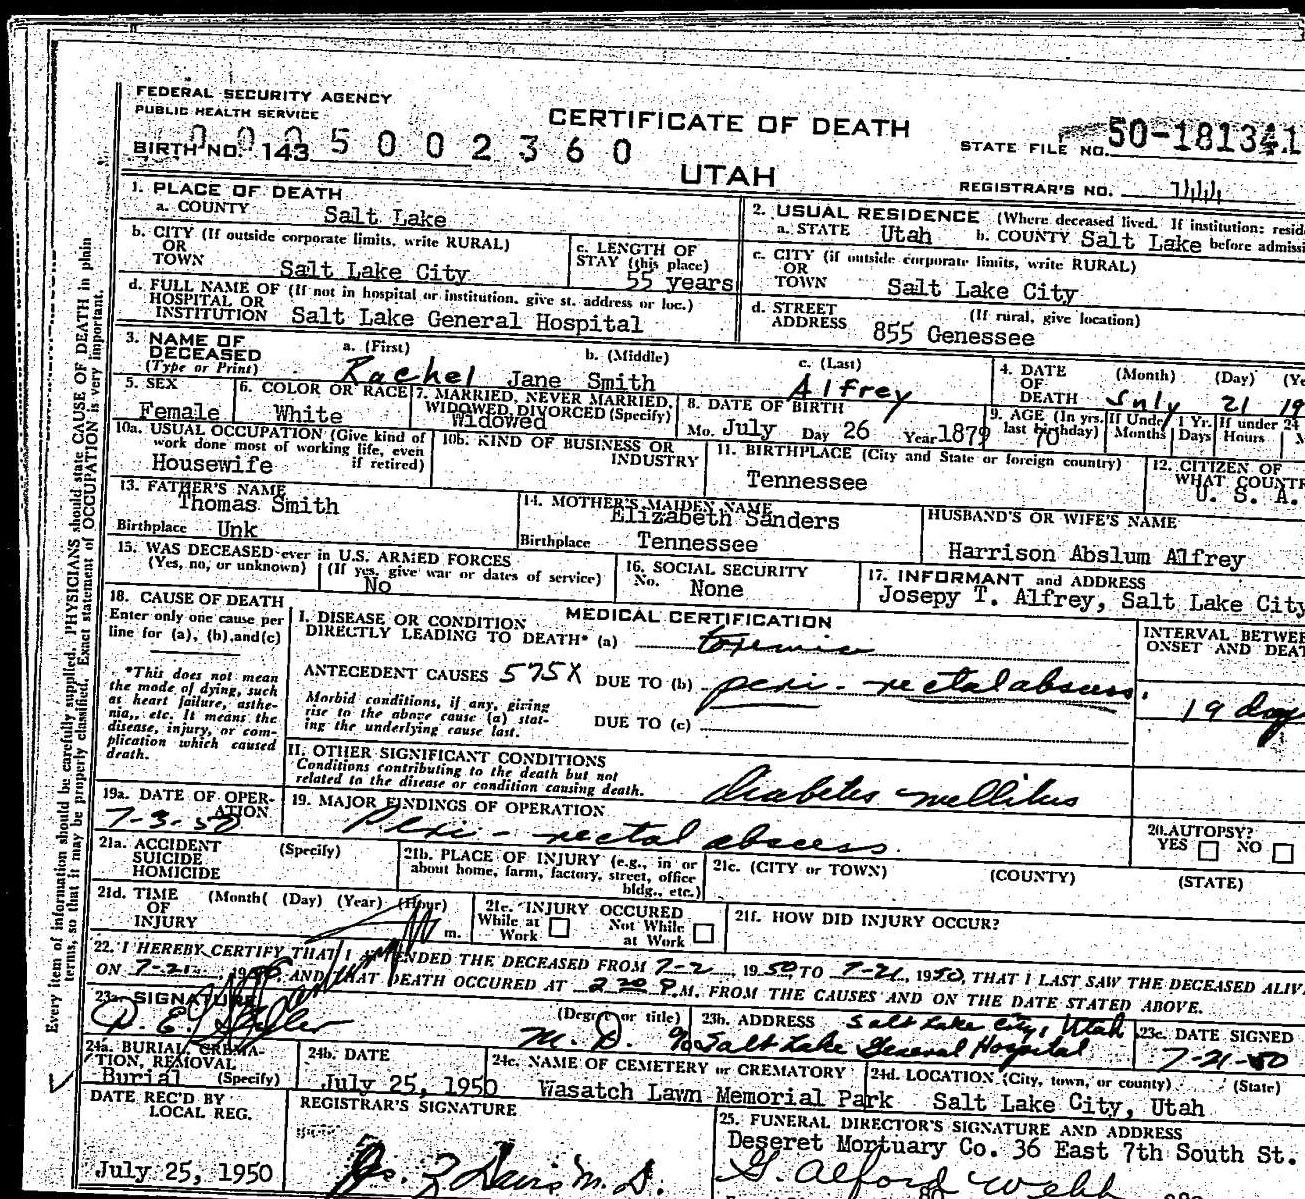 FEDERAL SECURITY AGENCY
PUBLIC HEALTH SERVICE
CERTIFICATE OF DEATH
UTAH
0005002360
BIRTH NO. 143
STATE FILE NO. 50-181341
REGISTRAR'S NO. 1444
1. PLACE OF DEATH
a. COUNTY Salt Lake
b. CITY (If outside corporate limits, write RURAL)
OR
TOWN Salt Lake City
c. LENGTH OF
STAY (this place)
55 years
d. FULL NAME OF (If not in hospital or institution, give st. address or loc.)
HOSPITAL OR
INSTITUTION Salt Lake General Hospital
2. USUAL RESIDENCE (Where deceased lived. If institution: resid
a. STATE Utah b. COUNTY Salt Lake before admissi
c. CITY (if outside corporate limits, write RURAL)
OR
TOWN Salt Lake City
d. STREET (If rural, give location)
ADDRESS 855 Genessee
3. NAME OF
DECEASED
(Type or Print)
a. (First) b. (Middle) c. (Last)
Rachel Jane Smith Alfrey
4. DATE (Month) (Day) (Ye
OF
DEATH July 21 19
5. SEX
Female
6. COLOR OR RACE
White
7. MARRIED, NEVER MARRIED,
WIDOWED, DIVORCED (Specify)
Widowed
8. DATE OF BIRTH
Mo. July Day 26 Year 1879
9. AGE (In yrs. last birthday) 70
If Under 1 Yr. Months Days
If under 24 Hours M
10a. USUAL OCCUPATION (Give kind of
work done most of working life, even
if retired)
Housewife
10b. KIND OF BUSINESS OR
INDUSTRY
11. BIRTHPLACE (City and State or foreign country)
Tennessee
12. CITIZEN OF
WHAT COUNTR
U. S. A.
13. FATHER'S NAME
Thomas Smith
Birthplace Unk
14. MOTHER'S MAIDEN NAME
Elizabeth Sanders
Birthplace Tennessee
HUSBAND'S OR WIFE'S NAME
Harrison Abslum Alfrey
15. WAS DECEASED ever in U.S. ARMED FORCES
(Yes, no, or unknown) (If yes, give war or dates of service)
No
16. SOCIAL SECURITY
No. None
17. INFORMANT and ADDRESS
Josepy T. Alfrey, Salt Lake City
18. CAUSE OF DEATH
Enter only one cause per
line for (a), (b), and (c)
*This does not mean
the mode of dying, such
as heart failure, asthe-
nia,, etc. It means the
disease, injury, or com-
plication which caused
death.
MEDICAL CERTIFICATION
I. DISEASE OR CONDITION
DIRECTLY LEADING TO DEATH* (a) toxemia
ANTECEDENT CAUSES 575X DUE TO (b) peri-rectal abscess.
Morbid conditions, if any, giving
rise to the above cause (a) stat-
ing the underlying cause last.
DUE TO (c)
INTERVAL BETWEE
ONSET AND DEAT
19 day
II. OTHER SIGNIFICANT CONDITIONS
Conditions contributing to the death but not
related to the disease or condition causing death.
Diabetes mellitus
19a. DATE OF OPER-
ATION
7-3-50
19. MAJOR FINDINGS OF OPERATION
Peri-rectal abscess.
20. AUTOPSY?
YES NO
21a. ACCIDENT (Specify)
SUICIDE
HOMICIDE
21b. PLACE OF INJURY (e.g., in or
about home, farm, factory, street, office
bldg., etc.)
21c. (CITY or TOWN) (COUNTY) (STATE)
21d. TIME (Month( (Day) (Year) (Hour)
OF
INJURY m.
21e. INJURY OCCURED
While at Work Not While at Work
21f. HOW DID INJURY OCCUR?
22. I HEREBY CERTIFY THAT I ATTENDED THE DECEASED FROM 7-2, 1950, TO 7-21, 1950, THAT I LAST SAW THE DECEASED ALIV
ON 7-21, 19 AND THAT DEATH OCCURED AT 2 20 P.M. FROM THE CAUSES AND ON THE DATE STATED ABOVE.
23a. SIGNATURE (Degree or title)
D. E. M. D.
23b. ADDRESS Salt Lake City, Utah
% Salt Lake General Hospital
23c. DATE SIGNED
7-21-50
24a. BURIAL, CREMA-
TION, REMOVAL
Burial (Specify)
24b. DATE
July 25, 1950
24c. NAME OF CEMETERY or CREMATORY
Wasatch Lawn Memorial Park
24d. LOCATION (City, town, or county) (State)
Salt Lake City, Utah
DATE REC'D BY
LOCAL REG.
July 25, 1950
REGISTRAR'S SIGNATURE
Davis M. D.
25. FUNERAL DIRECTOR'S SIGNATURE AND ADDRESS
Deseret Mortuary Co. 36 East 7th South St.
G. Alford Webb
Every item of information should be carefully supplied. PHYSICIANS should state CAUSE OF DEATH in plain
terms, so that it may be properly classified. Exact statement of OCCUPATION is very important.